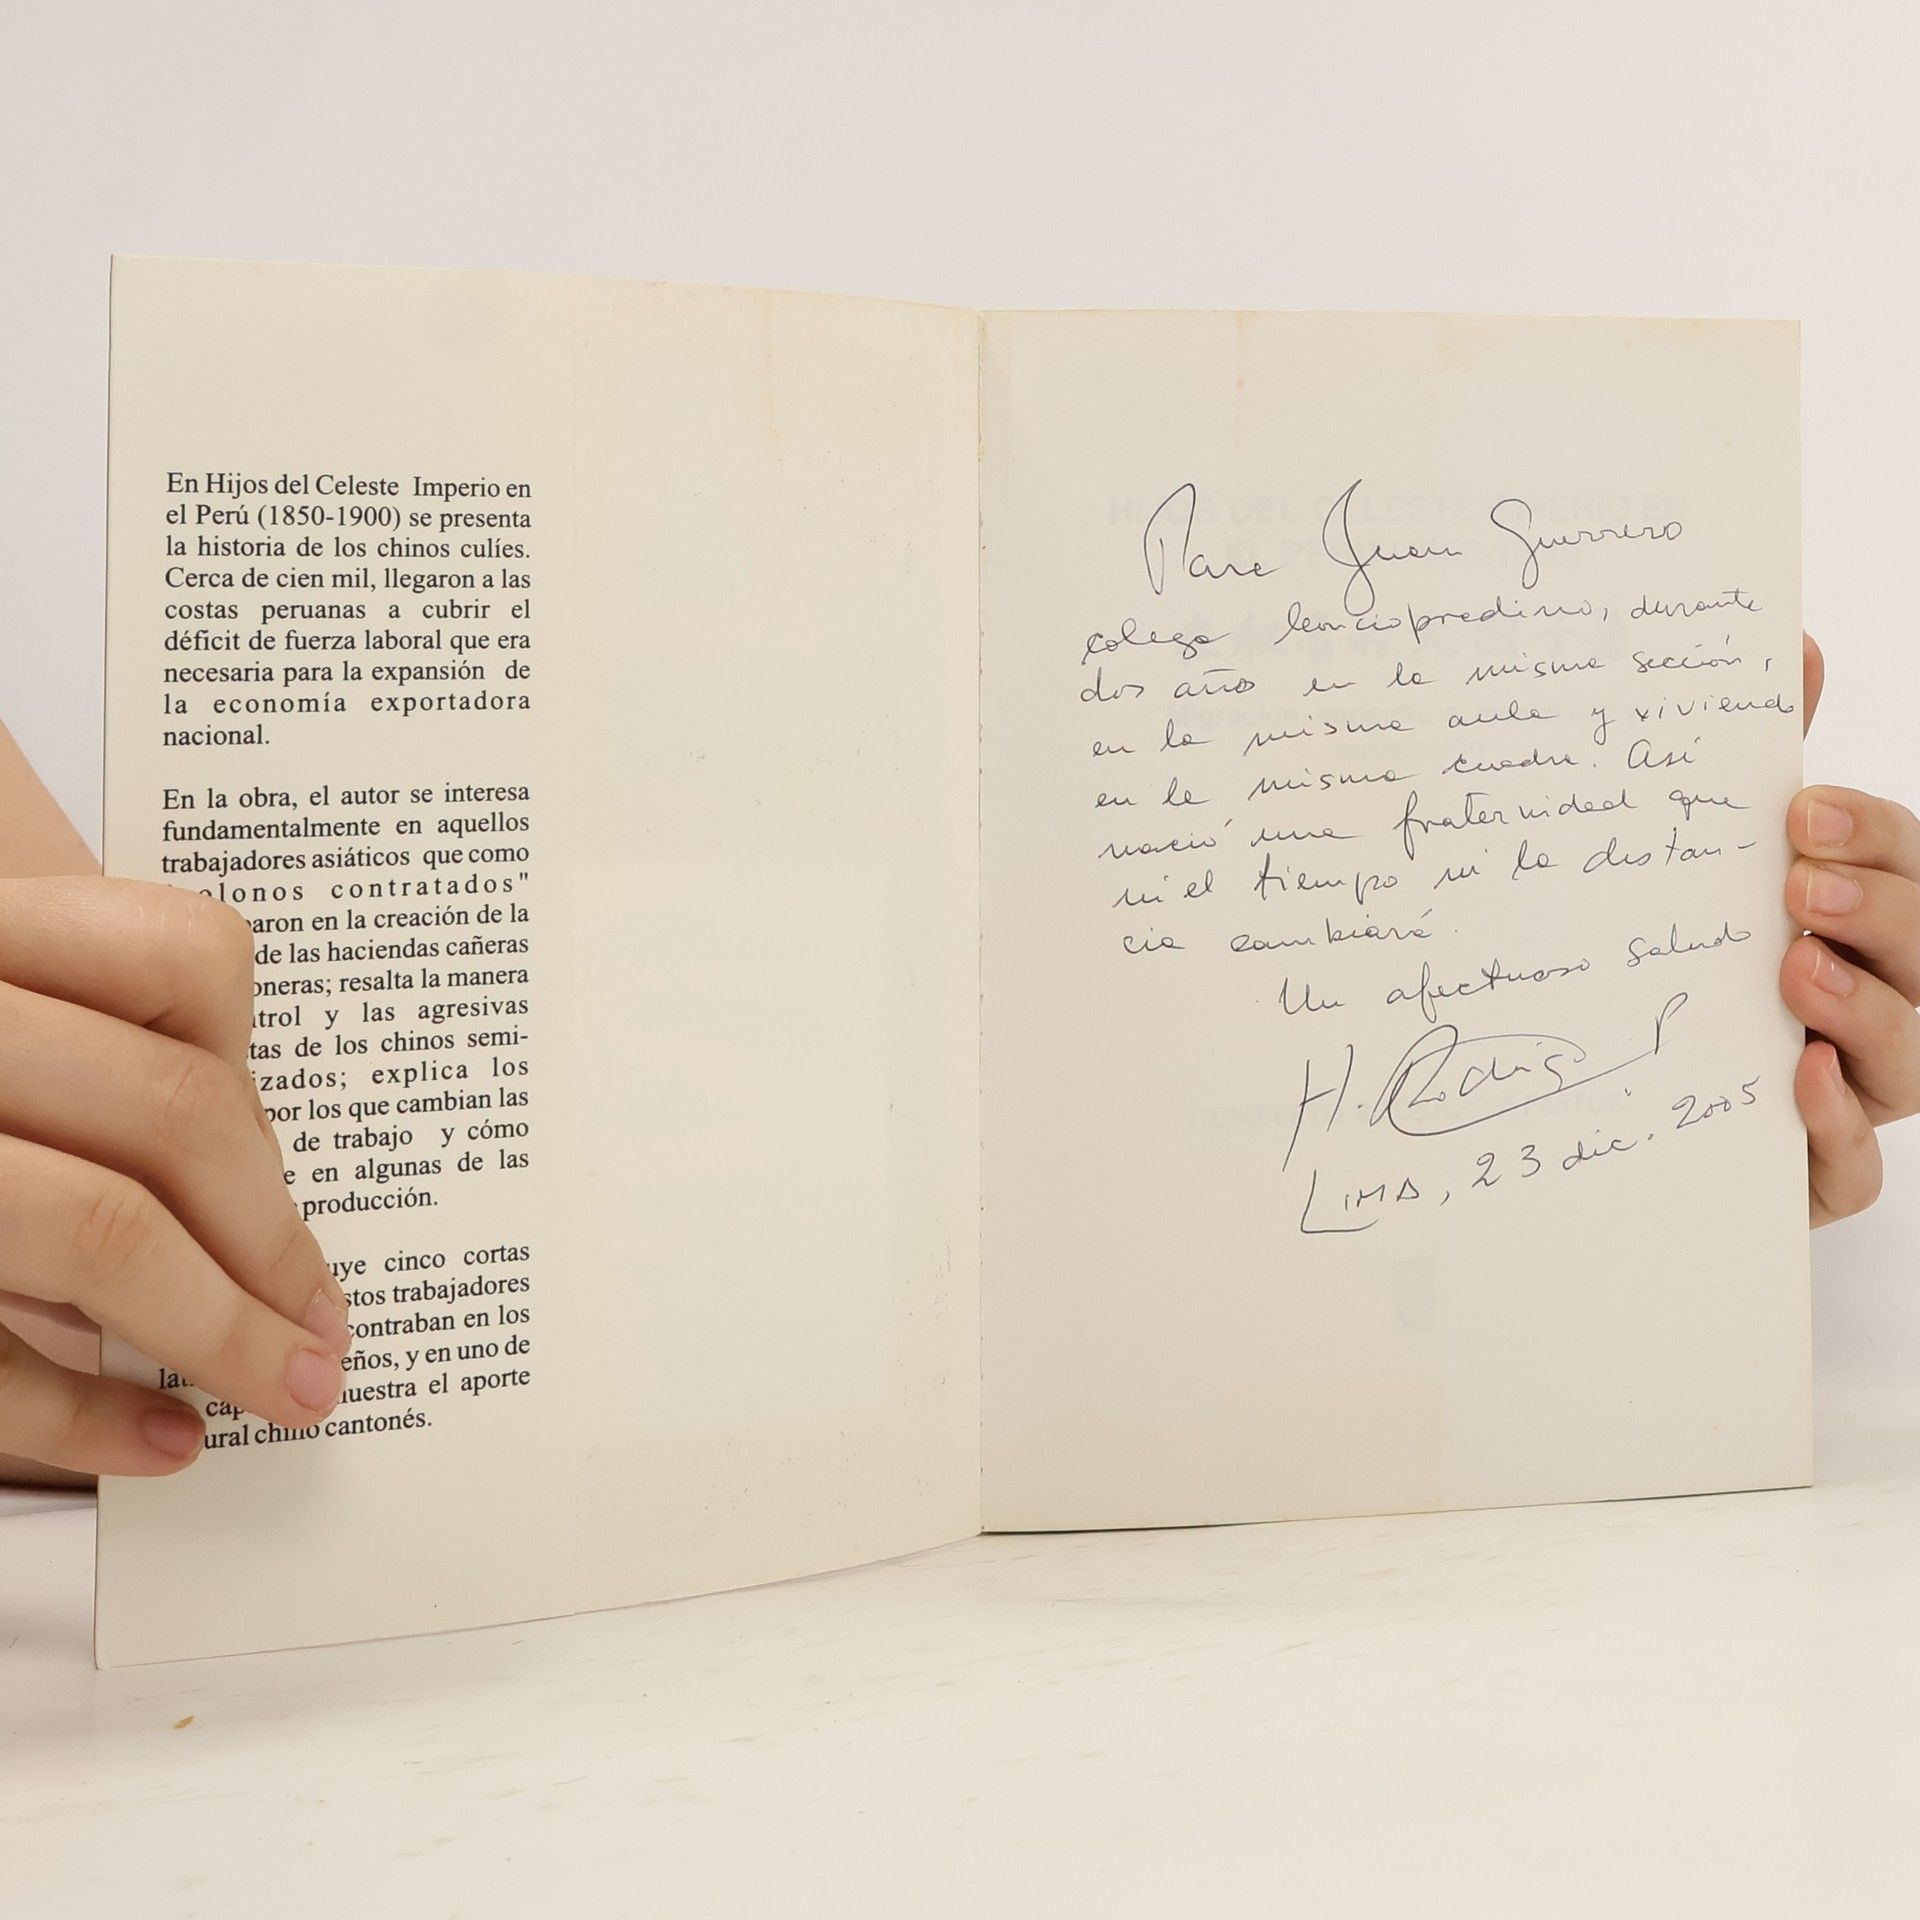 En Hijos del Celeste Imperio en
el Perú (1850-1900) se presenta
la historia de los chinos culíes.
Cerca de cien mil, llegaron a las
costas peruanas a cubrir el
déficit de fuerza laboral que era
necesaria para la expansión de
la economía exportadora
nacional.
En la obra, el autor se interesa
fundamentalmente en aquellos
trabajadores asiáticos que como
olonos contratados"
paron en la creación de la
de las haciendas cañeras
oneras; resalta la manera
trol y las agresivas
tas de los chinos semi-
izados; explica los
por los que cambian las
de trabajo y cómo
e en algunas de las
producción.
uye cinco cortas
stos trabajadores
contraban en los
eños, y en uno de
uestra el aporte
cap
ural chino cantonés.
Para Juan Guerrero
colega leonciopradino, durante
dos años en la misma sección,
en la misma aula y viviendo
en la misma cuadra. Así
nació una fraternidad que
ni el tiempo ni la distan-
cia cambiará.
Un afectuoso saludo
H. Rodrig P
LIMA, 23 dic. 2005